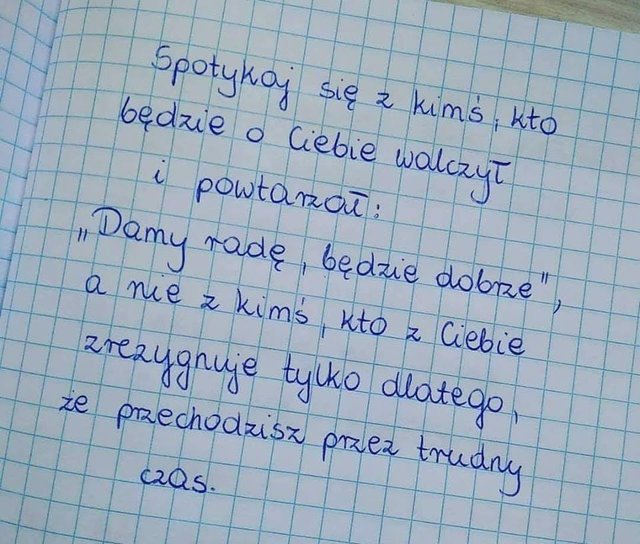 Spotykaj się z kimś, kto
będzie o Ciebie walczył
i powtarzał:
„Damy radę, będzie dobrze",
a nie z kimś, kto z Ciebie
zrezygnuje tylko dlatego,
że przechodzisz przez trudny
czas.